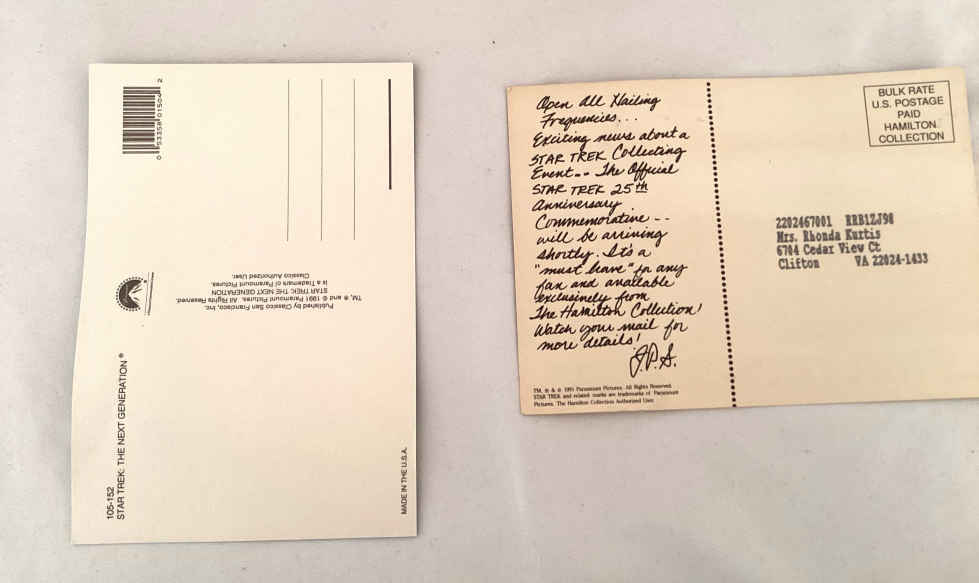 0 53358 01504 2
Published by Classico San Francisco, Inc.
TM, ® and © 1991 Paramount Pictures. All Rights Reserved.
STAR TREK: THE NEXT GENERATION
is a trademark of Paramount Pictures.
Classico Authorized User.
105-152
STAR TREK: THE NEXT GENERATION ®
MADE IN THE U.S.A.
Open All Hailing
Frequencies...
Exciting news about a
STAR TREK Collecting
Event -- The Official
STAR TREK 25th
Anniversary
Commemorative --
will be arriving
shortly. It's a
"must have" for any
fan and available
exclusively from
The Hamilton Collection!
Watch your mail for
more details!
J.P.S.
TM, ® & © 1991 Paramount Pictures. All Rights Reserved.
STAR TREK and related marks are trademarks of Paramount
Pictures. The Hamilton Collection Authorized User.
BULK RATE
U.S. POSTAGE
PAID
HAMILTON
COLLECTION
2202467001 RRB1ZJ98
Mrs. Rhonda Kurtis
6704 Cedar View Ct
Clifton VA 22024-1433